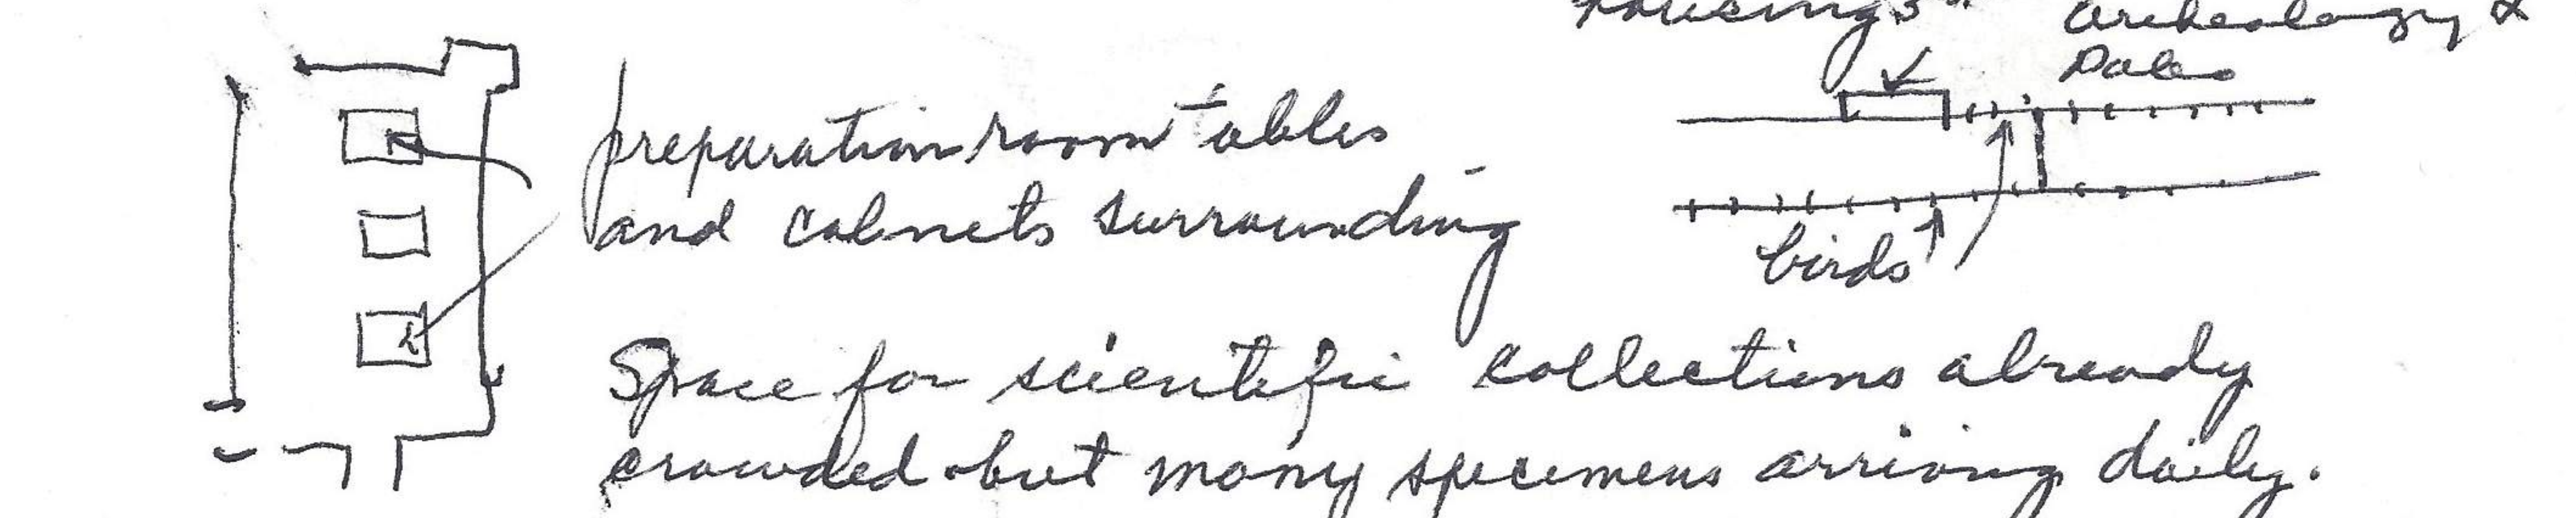 housings" archeology &
Paleo
preparation room tables
and cabnets surrounding
birds
Space for scientific collections already
crowded but many specimens arriving daily.